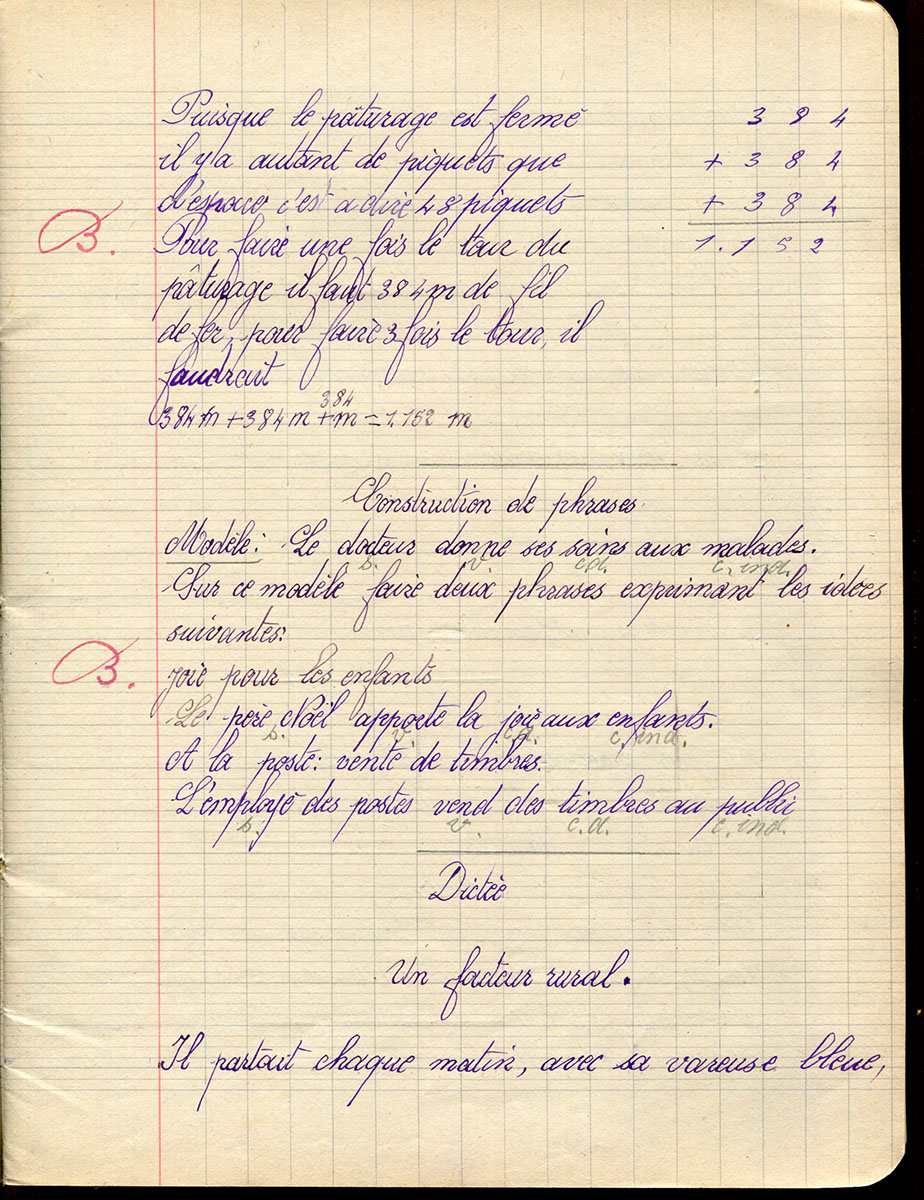 Puisque le pâturage est fermé 3 8 4
il y a autant de piquets que + 3 8 4
d'espace c'est a dire 48 piquets + 3 8 4
B. Pour faire une fois le tour du 1.1 5 2
pâturage il faut 384m de fil
de fer, pour faire 3 fois le tour, il
faudrait
384
384m + 384m + m = 1.152 m
Construction de phrases
Modèle: Le docteur donne ses soins aux malades.
s. v. c.d. c. ind.
Sur ce modèle faire deux phrases exprimant les idées
suivantes:
B. joie pour les enfants
Le père Noël apporte la joie aux enfants.
s. v. c.d. c. ind.
A la poste: vente de timbres.
L'employé des postes vend des timbres au public
s. v. c.d. c. ind.
Dictée
Un facteur rural.
Il partait chaque matin, avec sa vareuse bleue,